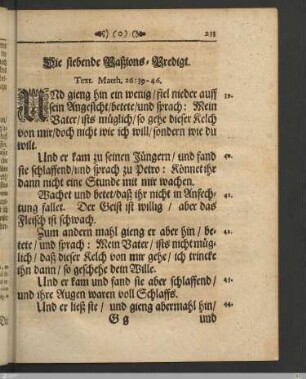 (o) 233
Die siebende Paßions-Predigt.
Text. Matth. 26:39-46.
UNd gieng hin ein wenig/fiel nieder auff 39.
sein Angesicht/betete/und sprach: Mein
Vater/ists müglich/so gehe dieser Kelch
von mir/doch nicht wie ich will/sondern wie du
wilt.
Und er kam zu seinen Jüngern/und fand 40.
sie schlaffend/und sprach zu Petro: Könnet ihr
dann nicht eine Stunde mit mir wachen.
Wachet und betet/daß ihr nicht in Anfech- 41.
tung fallet. Der Geist ist willig/aber das
Fleisch ist schwach.
Zum andern mahl gieng er aber hin/be- 42.
tete/und sprach: Mein Vater/ists nicht müg-
lich/daß dieser Kelch von mir gehe/ich trincke
ihn dann/so geschehe dein Wille.
Und er kam und fand sie aber schlaffend/ 43.
und ihre Augen waren voll Schlaffs.
Und er ließ sie/und gieng abermahl hin/ 44.
G g und